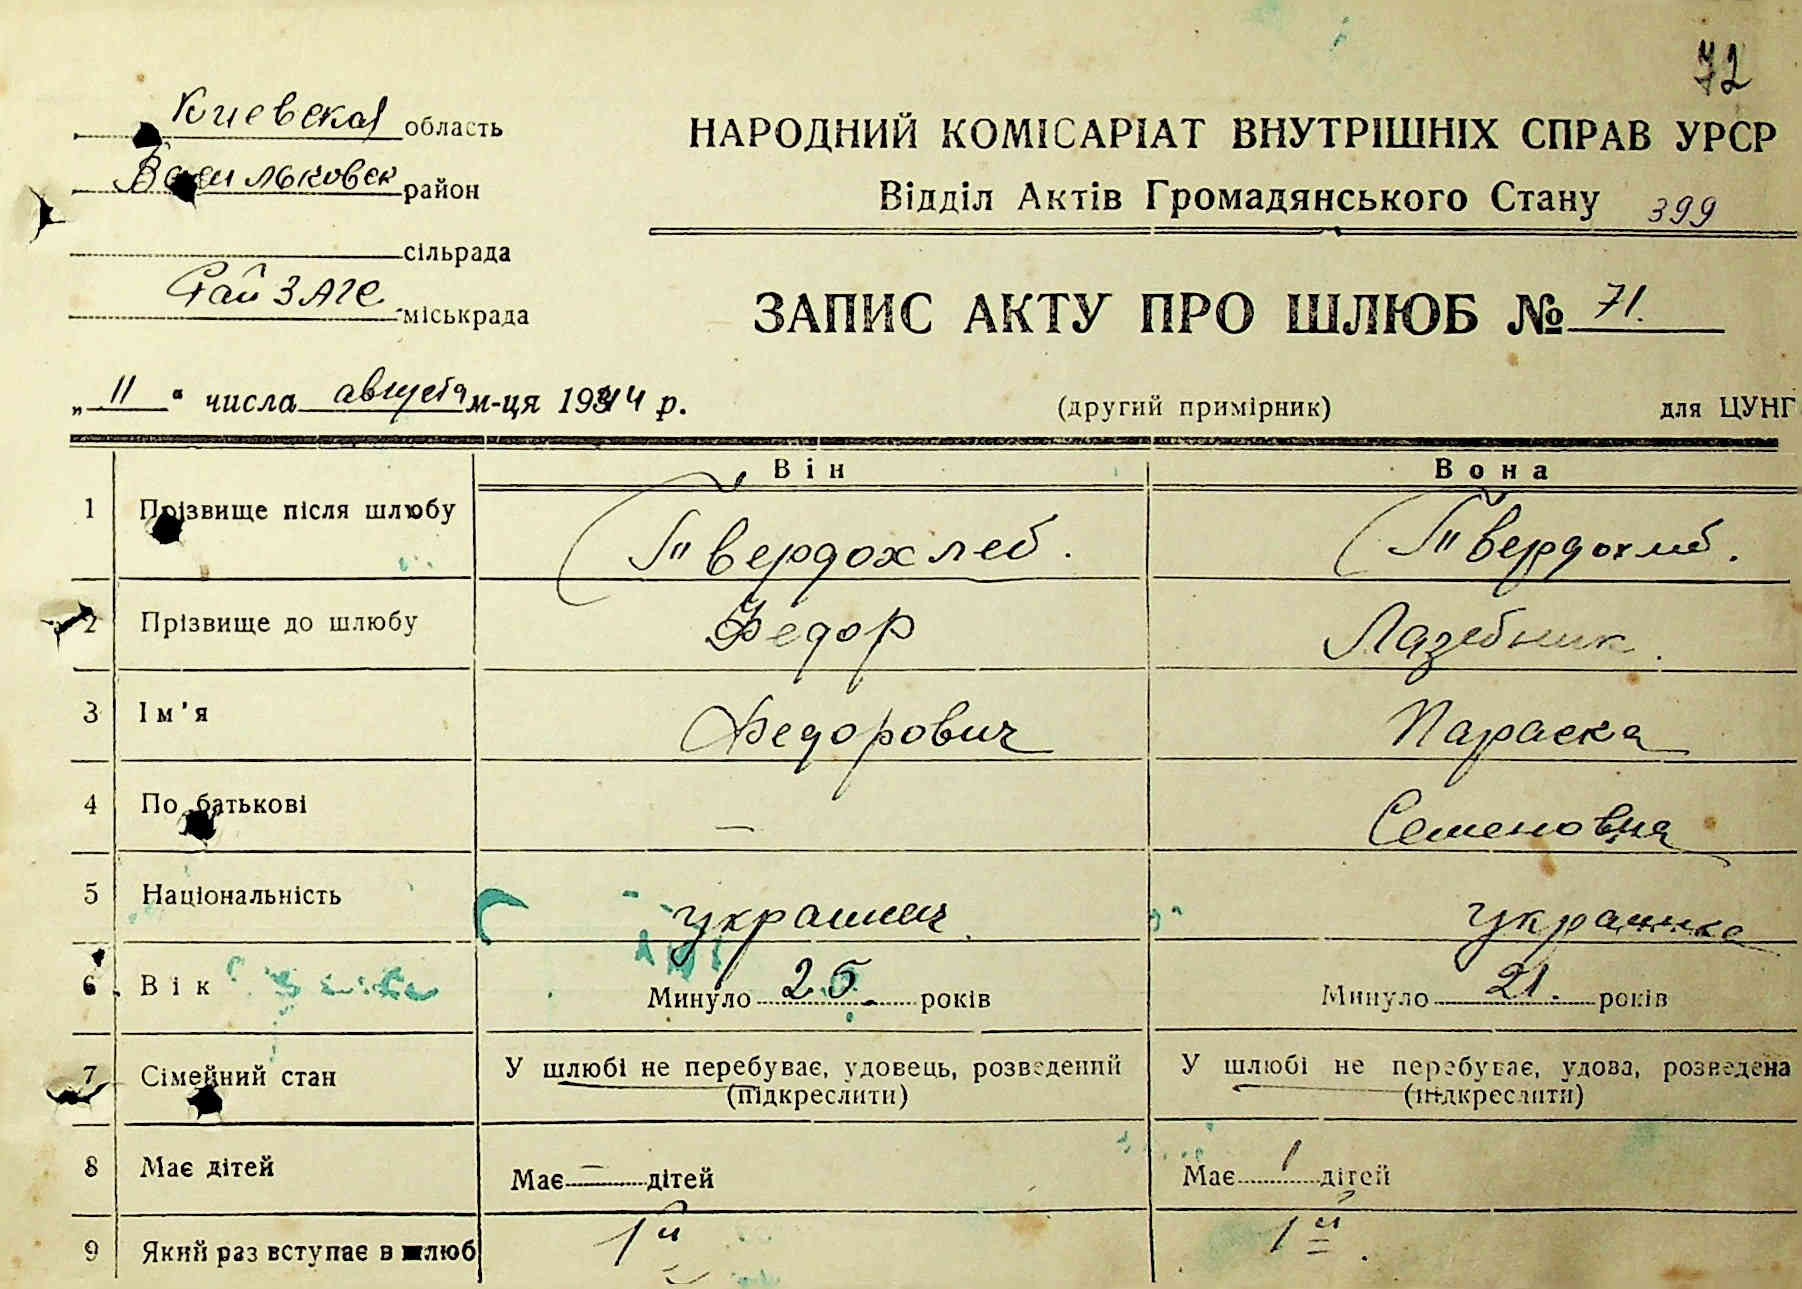 72
Киевская область
Васильковск район
сільрада
Рай ЗАГС міськрада
НАРОДНИЙ КОМІСАРІАТ ВНУТРІШНІХ СПРАВ УРСР
Відділ Актів Громадянського Стану 399
ЗАПИС АКТУ ПРО ШЛЮБ № 71.
„ 11 “ числа августа м-ця 1944 р.
(другий примірник) для ЦУНГ
Він Вона
1 Прізвище після шлюбу Твердохлеб. Твердохлеб.
2 Прізвище до шлюбу Федор Лазебник.
3 Ім'я Федорович Параска
4 По батькові — Семеновна
5 Національність украинец украинка
6 Вік Минуло 25 років Минуло 21. років
7 Сімейний стан У шлюбі не перебуває, удовець, розведений У шлюбі не перебуває, удова, розведена
(підкреслити) (підкреслити)
8 Має дітей Має — дітей Має 1 дітей
9 Який раз вступає в шлюб 1й 1й